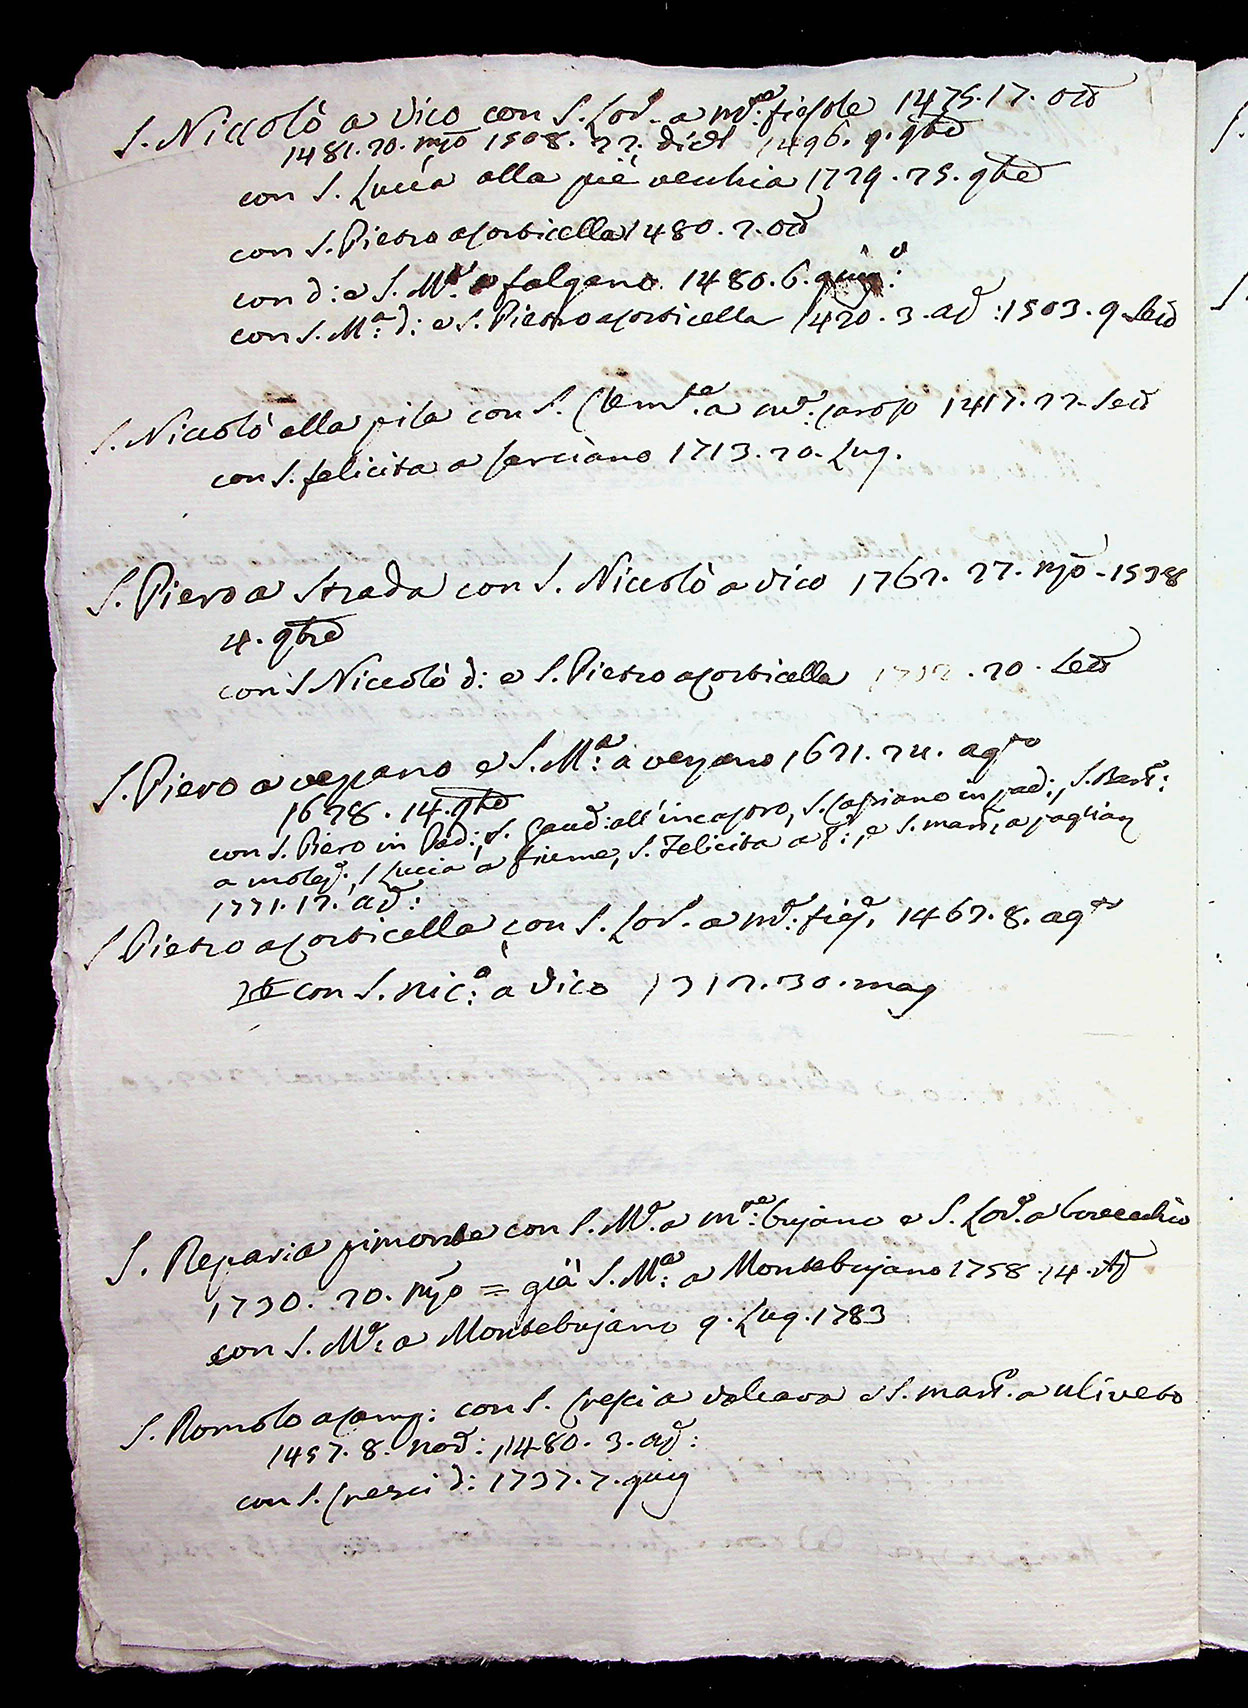 S. Niccolò a Vico con S. Lor.° a m.te fiesole 1475. 17. ott.e
1481. 20. mzo 1508. 22. dic.e 1496. 9. 9bre
con S. Lucia alla pie vecchia 1729. 25. 9bre
con S. Pietro a Corticella 1480. 2. ott.e
con d: e S. M.a a falgano 1480. 6. giug.°:
con S. M.a d: e S. Pietro a Corticella 1420. 3. ap.e: 1503. 9 sett.e
S. Niccolò alla pila con S. Clem.te a m.° Caroso 1417. 22. sett.e
con S. felicita a larciano 1713. 20. Lug.
S. Piero a Strada con S. Niccolò a Vico 1762. 27. mzo - 1528
4. 9bre
con S Niccolò d: e S. Pietro a Corticella 1712. 20. sett.e
S. Piero a vezzano e S. M.a a vezzano 1621. 24. ag.to
1628. 14. 9bre
con S. Piero in Pad.:, S. Gaud: all' incastro, S. Cassiano in pad:, S. Bart.°:
a mole, S Lucia a fiume, S. Felicita a f:, e S. mart.° a pagliar
1771. 12. ap.e:
S Pietro a Corticella con S. Lor.° a m.e: fies. 1462. 8. ag.to
con S. Nic.°: a Vico 1312. 30. mag
S. Reparia pimonte con S. M.a a m.te: bujano e S. Lor.° a bovecchio
1730. 20. mzo = già S. M.a: a Montebujano 1758. 14. Ap
con S. M.a: a Montebujano 9. Lug. 1783
S. Romolo a Camp: con S. Cresci a valcava e S. mart.° a uliveto
1457. 8. nov.e:, 1480. 3. ap.e:
con S. Cresci d: 1737. 7. giug